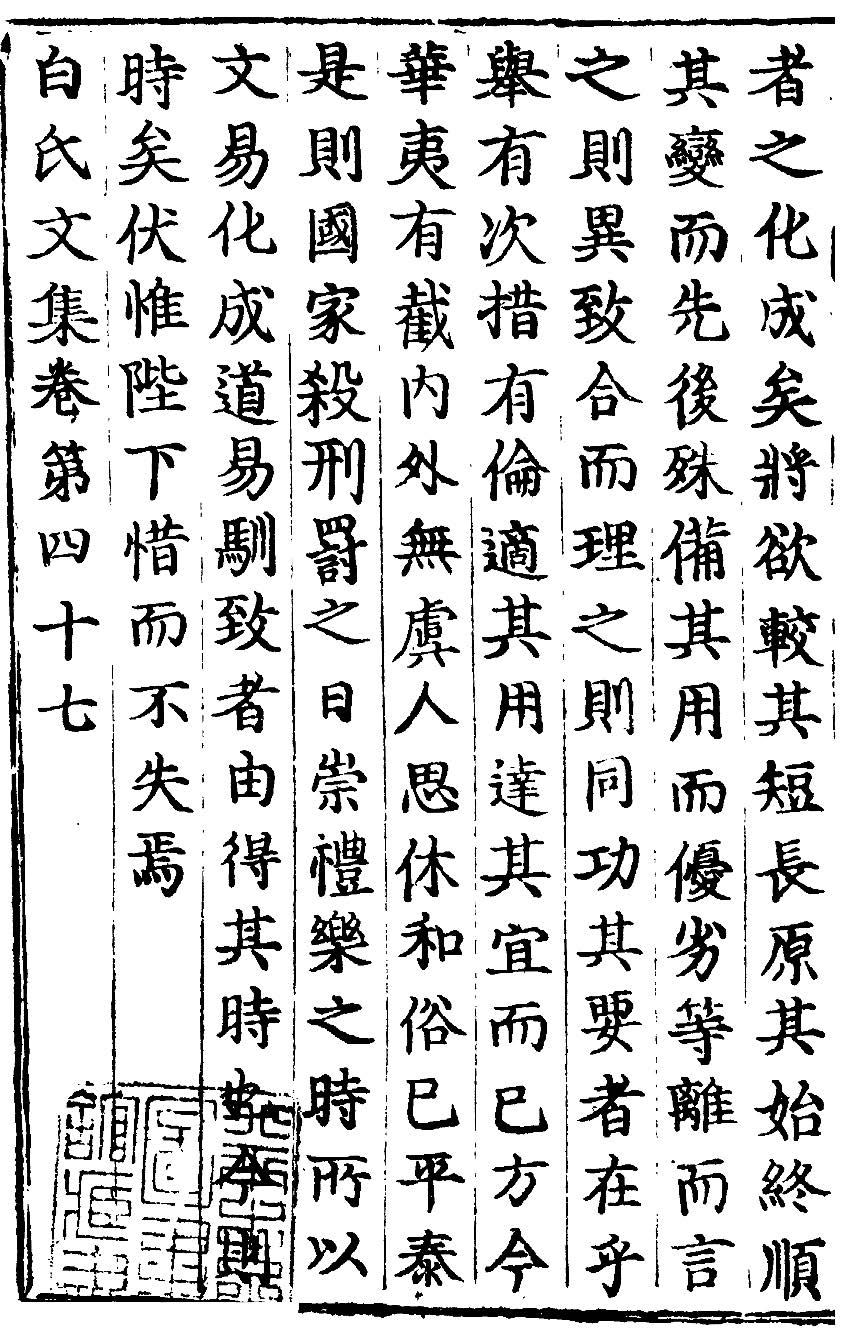 者之化成矣將欲較其短長原其始終順
其變而先後殊備其用而優劣等離而言
之則異致合而理之則同功其要者在乎
舉有次措有倫適其用達其宜而已方今
華夷有截內外無虞人思休和俗已平泰
是則國家殺刑罰之日崇禮樂之時所以
文易化成道易馴致者由得其時也今則
時矣伏惟陛下惜而不失焉
白氏文集卷第四十七